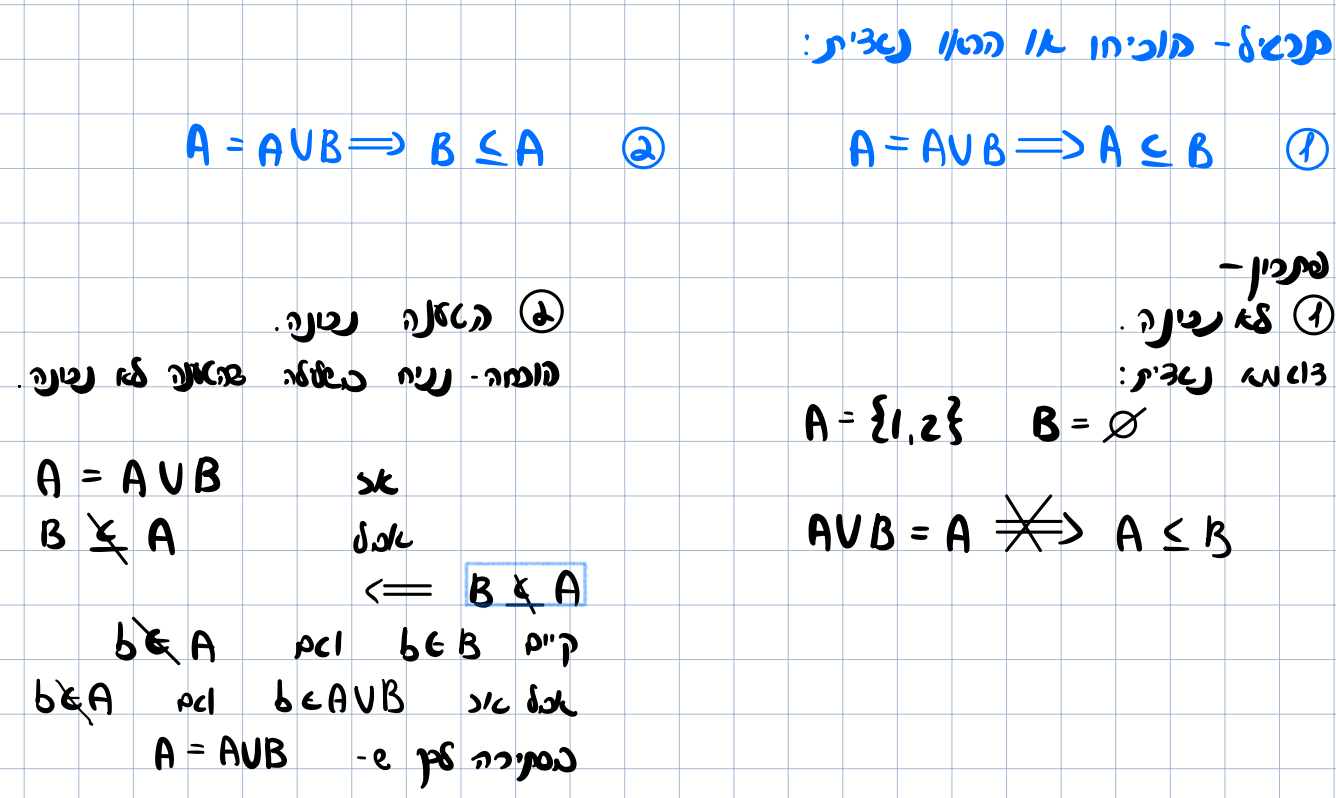 תרגיל - הוכיחו או הראו נגדית:
① A = A∪B ⟹ A ⊆ B
② A = A∪B ⟹ B ⊆ A
פתרון -
① לא נכונה.
דוגמא נגדית:
A = {1,2} B = ∅
A∪B = A ⟹̸ A ⊆ B
② הטענה נכונה.
הוכחה - נניח בשלילה שהטענה לא נכונה.
אז A = A∪B
אבל B ⊈ A
B ⊈ A ⟸
קיים b∈B וגם b∉A
אבל אז b∈A∪B וגם b∉A
בסתירה לכך ש- A = A∪B